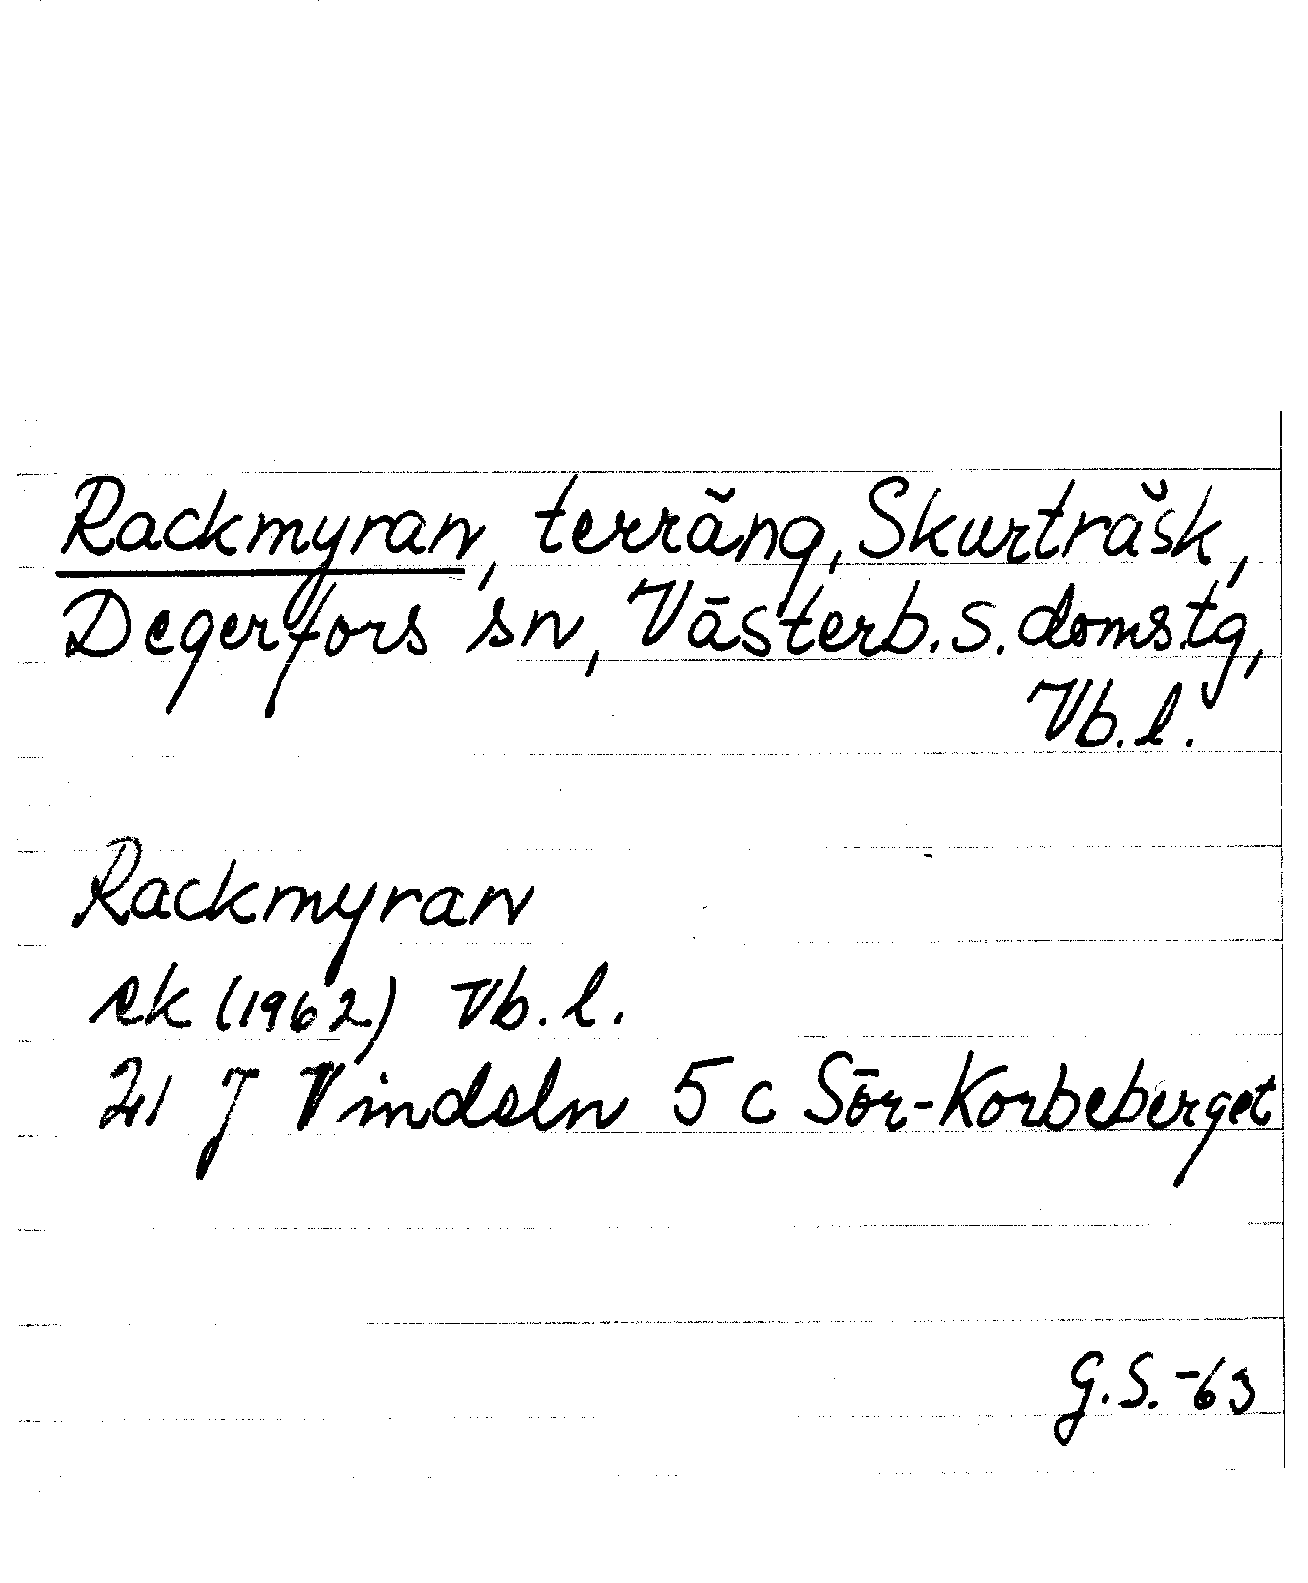 Rackmyran, terräng, Skurträsk,
Degerfors sn, Västerb. s. domstg,
Vb. l.
Rackmyran
ek (1962) Vb. l.
21 J Vindeln 5 c Sör-Korbeberget
G.S. -63